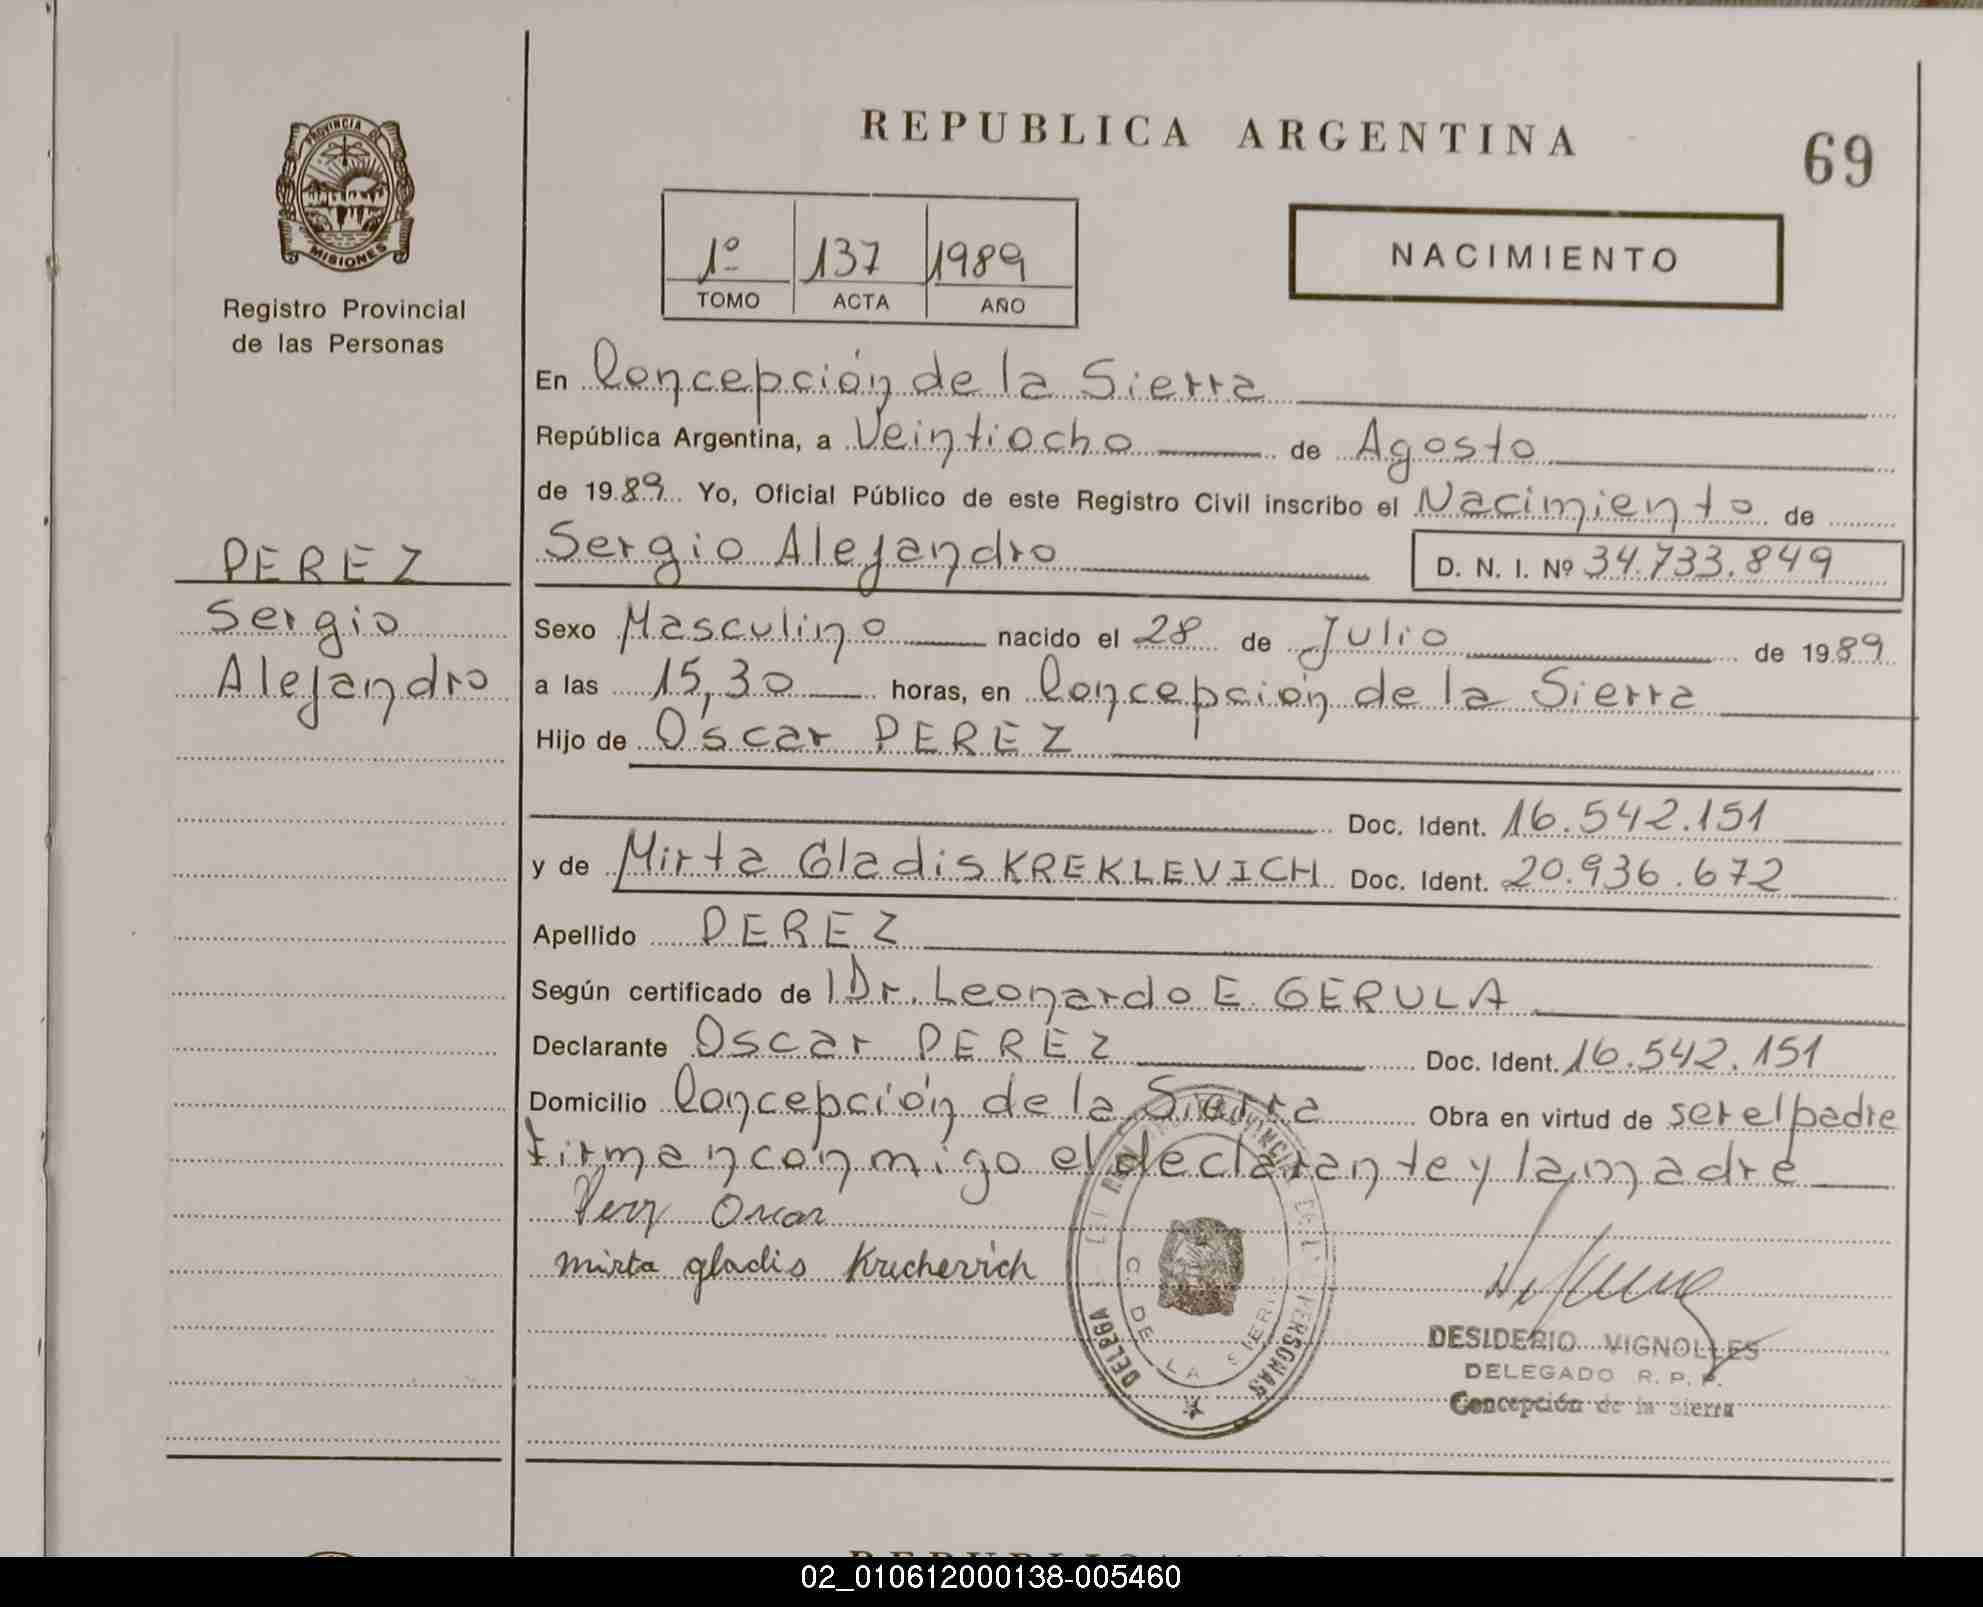 REPUBLICA ARGENTINA
69
PROVINCIA DE
MISIONES
Registro Provincial
de las Personas
1º 137 1989
TOMO ACTA AÑO
NACIMIENTO
En Concepción de la Sierra
República Argentina, a Veintiocho de Agosto
de 1989 Yo, Oficial Público de este Registro Civil inscribo el Nacimiento de
PEREZ
Sergio
Alejandro
Sergio Alejandro D. N. I. Nº 34.733.849
Sexo Masculino nacido el 28 de Julio de 1989
a las 15,30 horas, en Concepción de la Sierra
Hijo de Oscar PEREZ
Doc. Ident. 16.542.151
y de Mirta Gladis KREKLEVICH Doc. Ident. 20.936.672
Apellido PEREZ
Según certificado de Dr. Leonardo E. GERULA
Declarante Oscar PEREZ Doc. Ident. 16.542.151
Domicilio Concepción de la Sierra Obra en virtud de ser el padre
firman conmigo el declarante y la madre
Perez Oscar
mirta gladis
DE LA SIERRA
PERSONAS
DESIDERIO VIGNOLLES
DELEGADO R. P. P.
Concepción de la Sierra
02_010612000138-005460